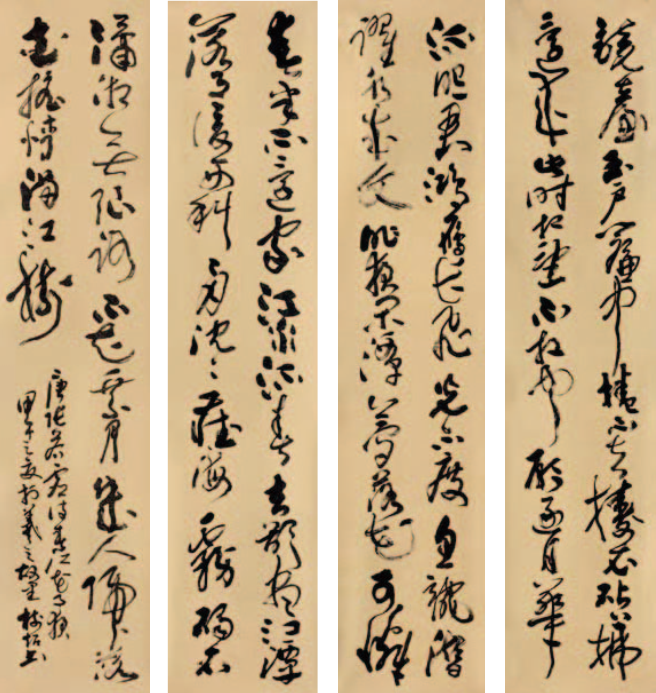 鏡臺玉戶簾中捲不去擣衣砧上拂
還來此時相望不相聞願逐月華
流照君鴻雁長飛光不度魚龍潛
躍水成文昨夜閑潭夢落花可憐
春半不還家江水流春去欲盡江潭
落月復西斜斜月沈沈藏海霧碣石
瀟湘無限路不知乘月幾人歸落
月搖情滿江樹
唐張若虛詩春江花月夜
甲午之夏於羲之故里